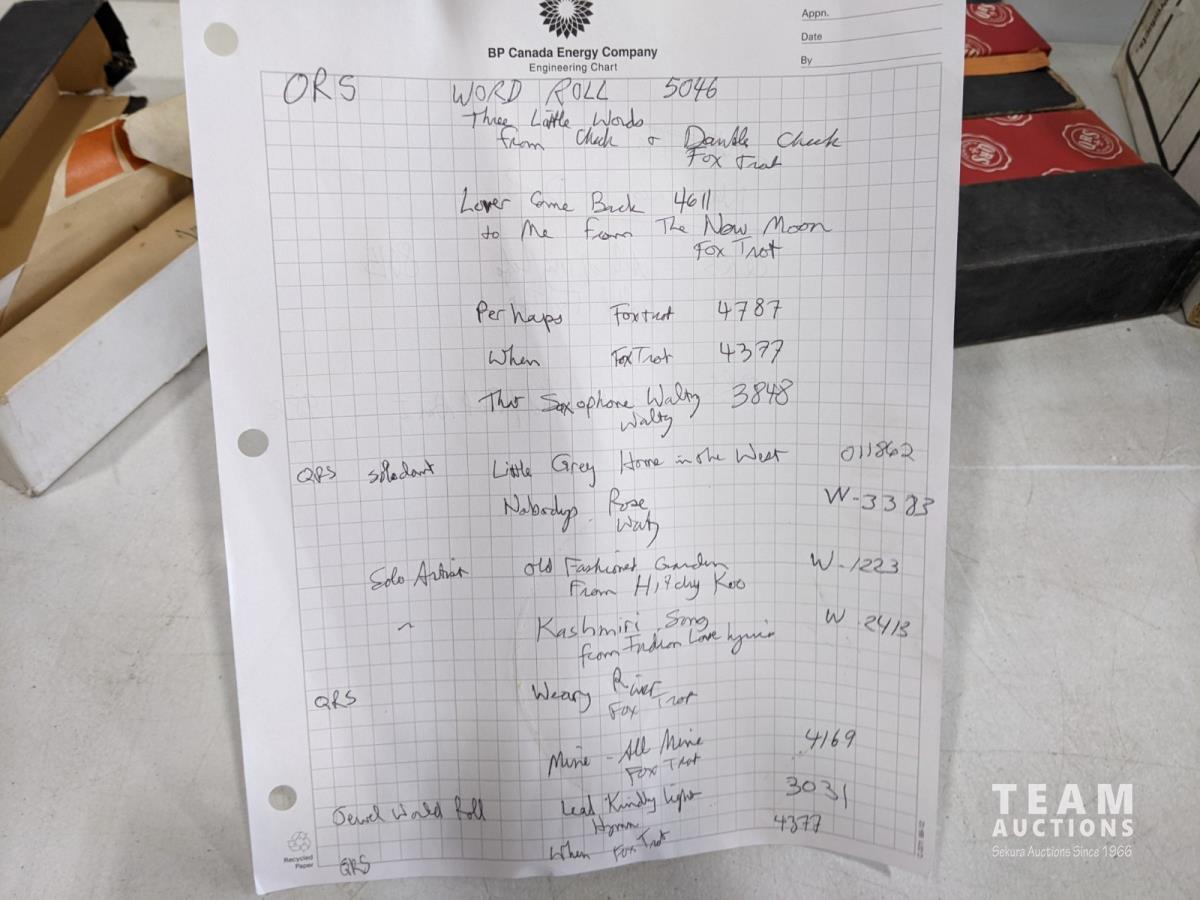 Appn.
Date
By
BP Canada Energy Company
Engineering Chart
QRS WORD ROLL 5046
Three Little Words
from Check & Double Check
Fox Trot
Lover Come Back 4611
to Me from The New Moon
Fox Trot
Perhaps Foxtrot 4787
When Fox Trot 4377
The Saxophone Waltz 3848
Waltz
QRS Solodant Little Grey Home in the West 011862
Nobodys Rose W-3383
Waltz
Solo Artist Old Fashioned Garden W-1223
From Hitchy Koo
" Kashmiri Song W 2413
from Indian Love Lyrics
QRS Weary River
Fox Trot
Mine - All Mine 4169
Fox Trot
Jewel World Roll Lead Kindly Light 3031
Hymn
QRS When Fox Trot 4377
Recycled
Paper
TEAM
AUCTIONS
Sekura Auctions Since 1966
QRS
QRS